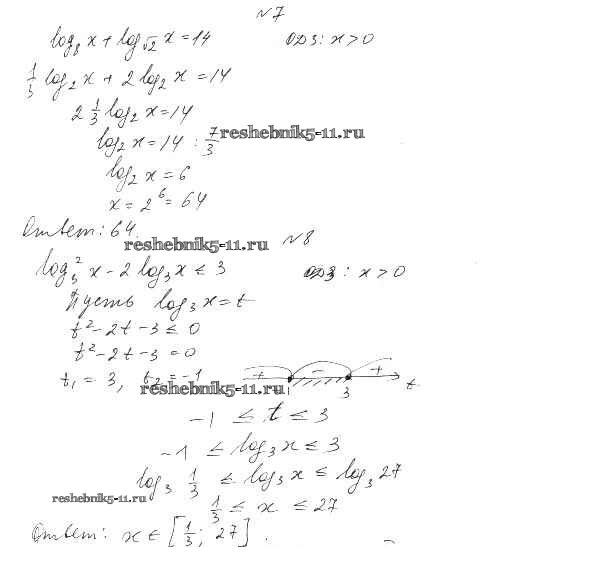 №7
log₈ x + log_√2 x = 14 ОДЗ: x > 0
1/3 log₂ x + 2 log₂ x = 14
2 1/3 log₂ x = 14
log₂ x = 14 : 7/3
reshebnik5-11.ru
log₂ x = 6
x = 2⁶ = 64
Ответ: 64.
reshebnik5-11.ru
№8
log₃² x - 2 log₃ x ≤ 3 ОДЗ: x > 0
Пусть log₃ x = t
t² - 2t - 3 ≤ 0
t² - 2t - 3 = 0
t₁ = 3, t₂ = -1
+ - + t
3
reshebnik5-11.ru
-1 ≤ t ≤ 3
-1 ≤ log₃ x ≤ 3
log₃ 1/3 ≤ log₃ x ≤ log₃ 27
reshebnik5-11.ru
1/3 ≤ x ≤ 27
Ответ: x ∈ [1/3; 27].